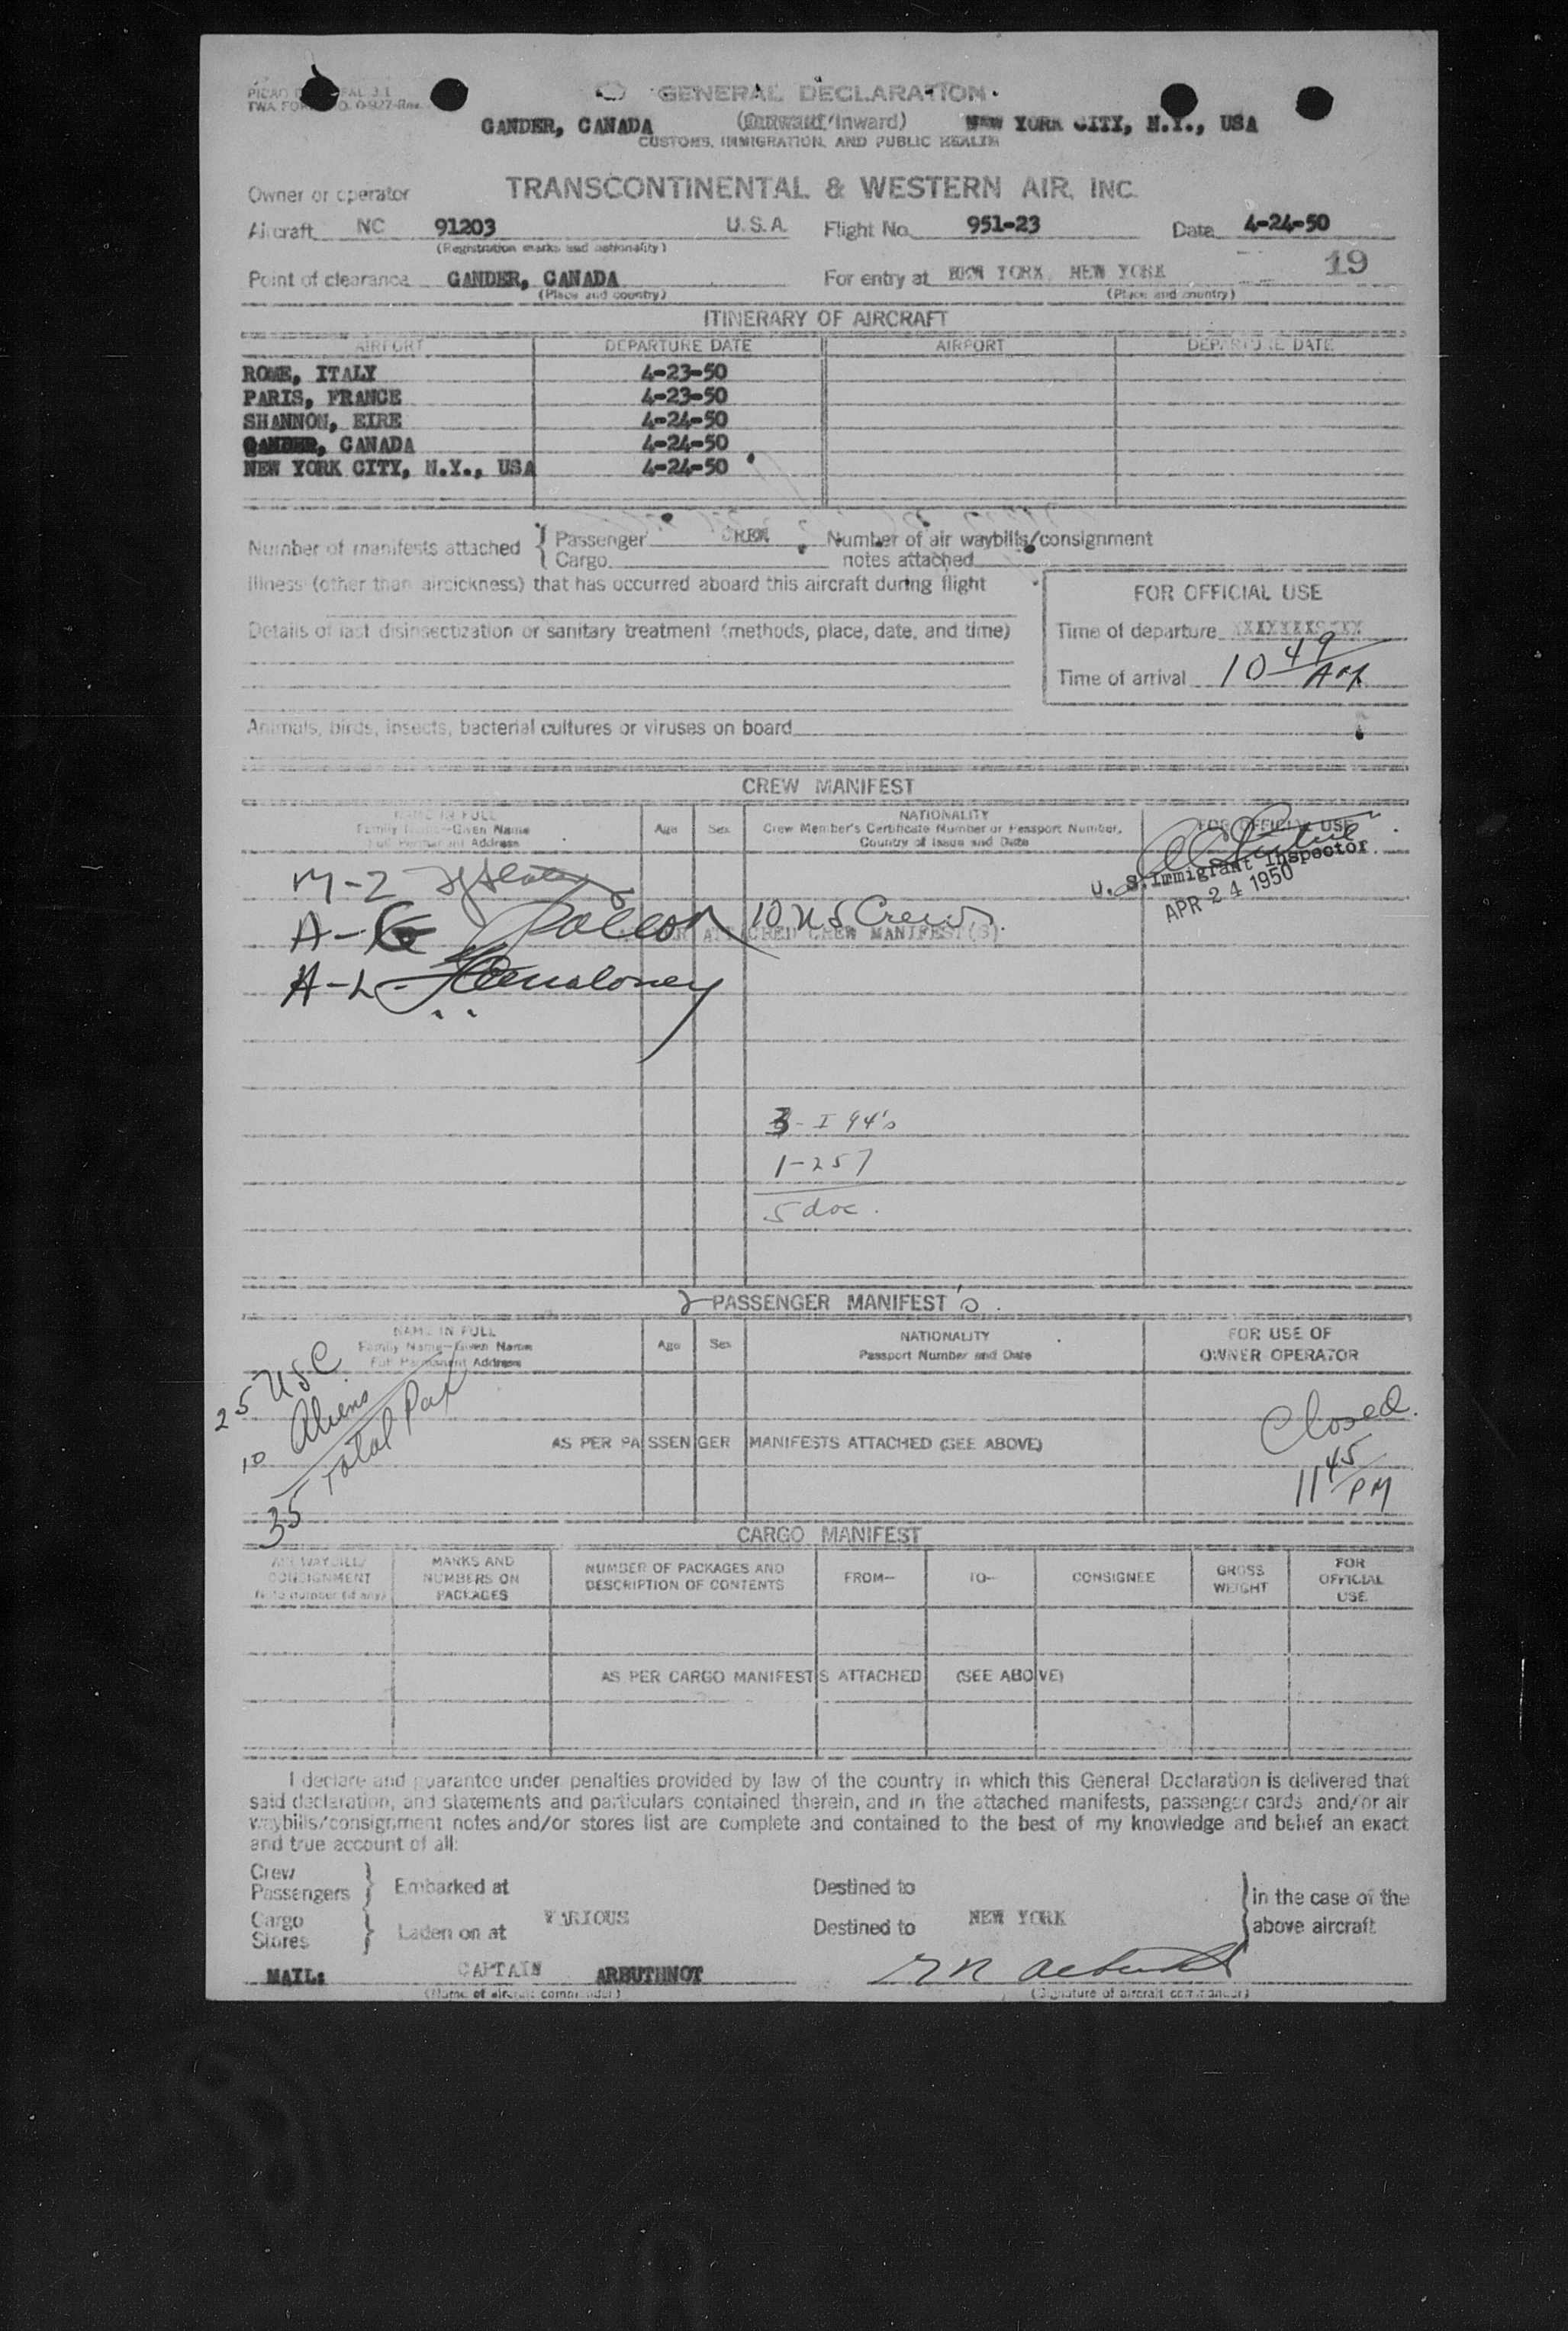 GENERAL DECLARATION
GANDER, CANADA (Outward/Inward) NEW YORK CITY, N.Y., USA
CUSTOMS, IMMIGRATION, AND PUBLIC HEALTH
Owner or operator TRANSCONTINENTAL & WESTERN AIR, INC.
Aircraft NC 91203 U.S.A. Flight No. 951-23 Date 4-24-50
(Registration marks and nationality)
19
Point of clearance GANDER, CANADA For entry at NEW YORK, NEW YORK
(Place and country) (Place and country)
ITINERARY OF AIRCRAFT
AIRPORT DEPARTURE DATE AIRPORT DEPARTURE DATE
ROME, ITALY 4-23-50
PARIS, FRANCE 4-23-50
SHANNON, EIRE 4-24-50
GANDER, CANADA 4-24-50
NEW YORK CITY, N.Y., USA 4-24-50
Number of manifests attached { Passenger CREW Number of air waybills/consignment
Cargo notes attached
Illness (other than airsickness) that has occurred aboard this aircraft during flight
FOR OFFICIAL USE
Details of last disinsectization or sanitary treatment (methods, place, date, and time)
Time of departure
Time of arrival 10 49 AM
Animals, birds, insects, bacterial cultures or viruses on board
CREW MANIFEST
NAME IN FULL
Family Name—Given Name
Full Permanent Address
Age Sex
NATIONALITY
Crew Member's Certificate Number or Passport Number,
Country of Issue and Date
FOR OFFICIAL USE
U. S. Immigrant Inspector
APR 24 1950
M-2
A-G
10 US Crew
ATTACHED CREW MANIFEST(S)
A-L
3 - I 94's
1-257
5 doc.
2 PASSENGER MANIFEST's
NAME IN FULL
Family Name—Given Name
Full Permanent Address
Age Sex
NATIONALITY
Passport Number and Date
FOR USE OF
OWNER OPERATOR
25 USC
10 Aliens
35 Total Pax
AS PER PASSENGER MANIFESTS ATTACHED (SEE ABOVE)
Closed.
11 45 PM
CARGO MANIFEST
AIR WAYBILL/
CONSIGNMENT
Note number (if any)
MARKS AND
NUMBERS ON
PACKAGES
NUMBER OF PACKAGES AND
DESCRIPTION OF CONTENTS
FROM—
TO—
CONSIGNEE
GROSS
WEIGHT
FOR
OFFICIAL
USE
AS PER CARGO MANIFESTS ATTACHED (SEE ABOVE)
I declare and guarantee under penalties provided by law of the country in which this General Declaration is delivered that
said declaration, and statements and particulars contained therein, and in the attached manifests, passenger cards and/or air
waybills/consignment notes and/or stores list are complete and contained to the best of my knowledge and belief an exact
and true account of all:
Crew
Passengers } Embarked at Destined to } in the case of the
Cargo
Stores } Laden on at VARIOUS Destined to NEW YORK above aircraft
MAIL: CAPTAIN ARBUTHNOT
(Name of aircraft commander) (Signature of aircraft commander)